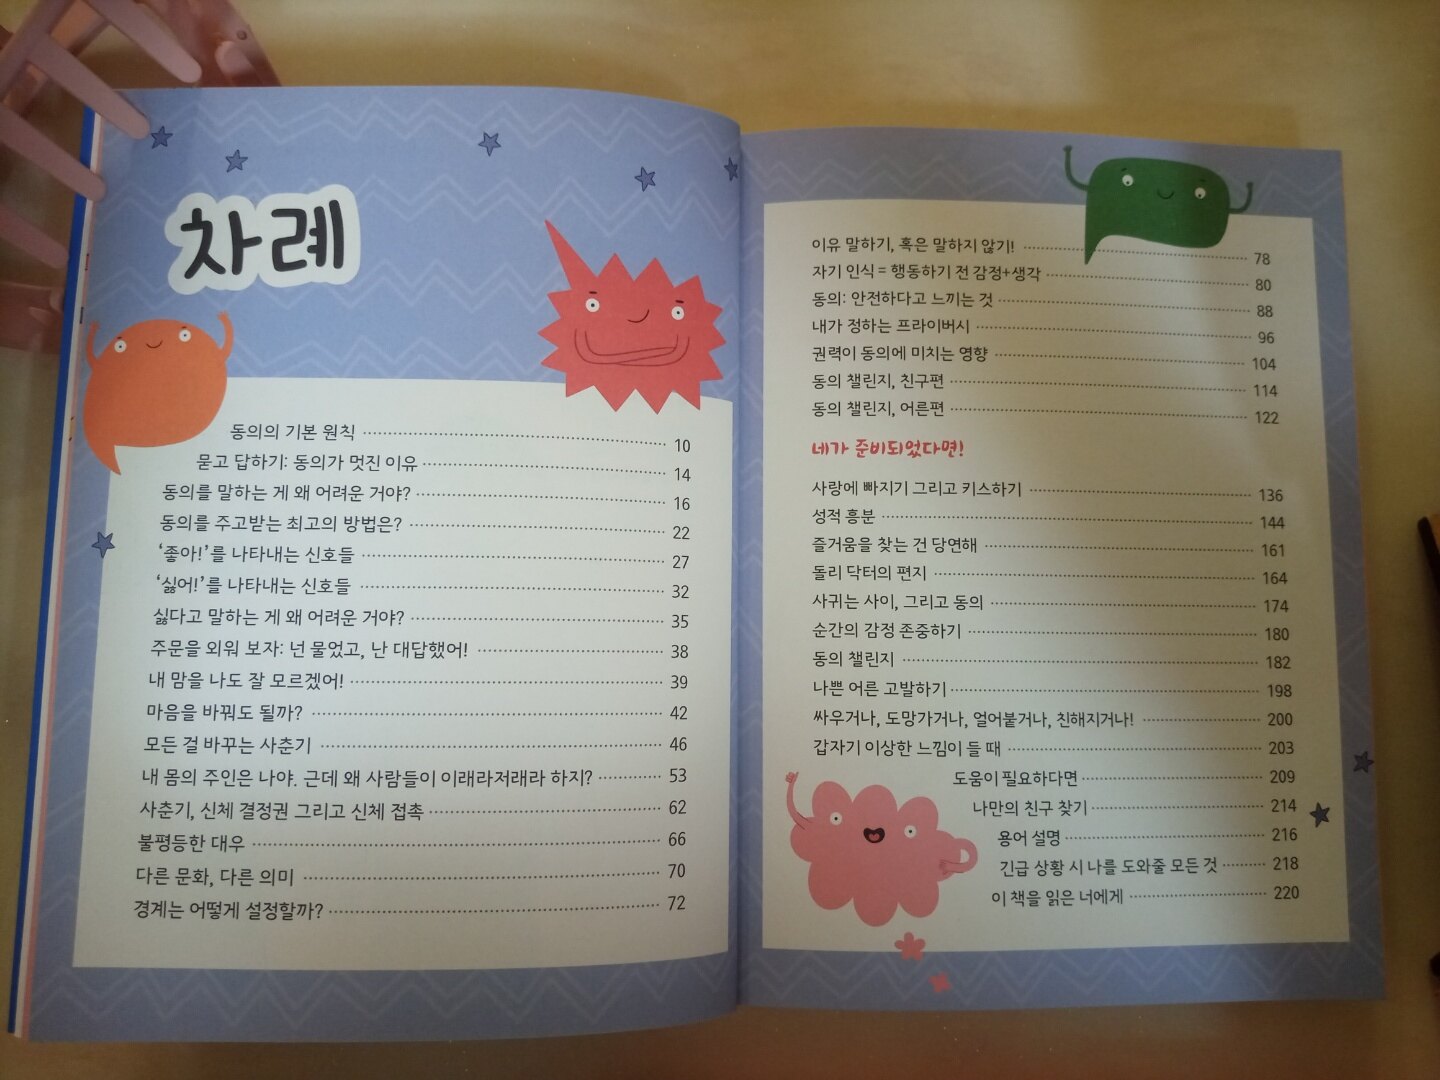 차례
동의의 기본 원칙 10
묻고 답하기: 동의가 멋진 이유 14
동의를 말하는 게 왜 어려운 거야? 16
동의를 주고받는 최고의 방법은? 22
‘좋아!’를 나타내는 신호들 27
‘싫어!’를 나타내는 신호들 32
싫다고 말하는 게 왜 어려운 거야? 35
주문을 외워 보자: 넌 물었고, 난 대답했어! 38
내 맘을 나도 잘 모르겠어! 39
마음을 바꿔도 될까? 42
모든 걸 바꾸는 사춘기 46
내 몸의 주인은 나야. 근데 왜 사람들이 이래라저래라 하지? 53
사춘기, 신체 결정권 그리고 신체 접촉 62
불평등한 대우 66
다른 문화, 다른 의미 70
경계는 어떻게 설정할까? 72
이유 말하기, 혹은 말하지 않기! 78
자기 인식 = 행동하기 전 감정+생각 80
동의: 안전하다고 느끼는 것 88
내가 정하는 프라이버시 96
권력이 동의에 미치는 영향 104
동의 챌린지, 친구편 114
동의 챌린지, 어른편 122
네가 준비되었다면!
사랑에 빠지기 그리고 키스하기 136
성적 흥분 144
즐거움을 찾는 건 당연해 161
돌리 닥터의 편지 164
사귀는 사이, 그리고 동의 174
순간의 감정 존중하기 180
동의 챌린지 182
나쁜 어른 고발하기 198
싸우거나, 도망가거나, 얼어붙거나, 친해지거나! 200
갑자기 이상한 느낌이 들 때 203
도움이 필요하다면 209
나만의 친구 찾기 214
용어 설명 216
긴급 상황 시 나를 도와줄 모든 것 218
이 책을 읽은 너에게 220